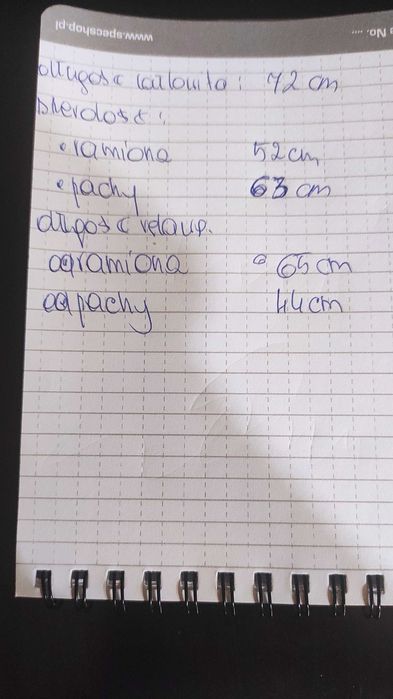 www.specshop.pl
No. ....
długość całkowita: 72 cm
szerokość:
• ramiona 52 cm
• pachy 63 cm
długość rękaw.
od ramiona 65 cm
od pachy 44 cm